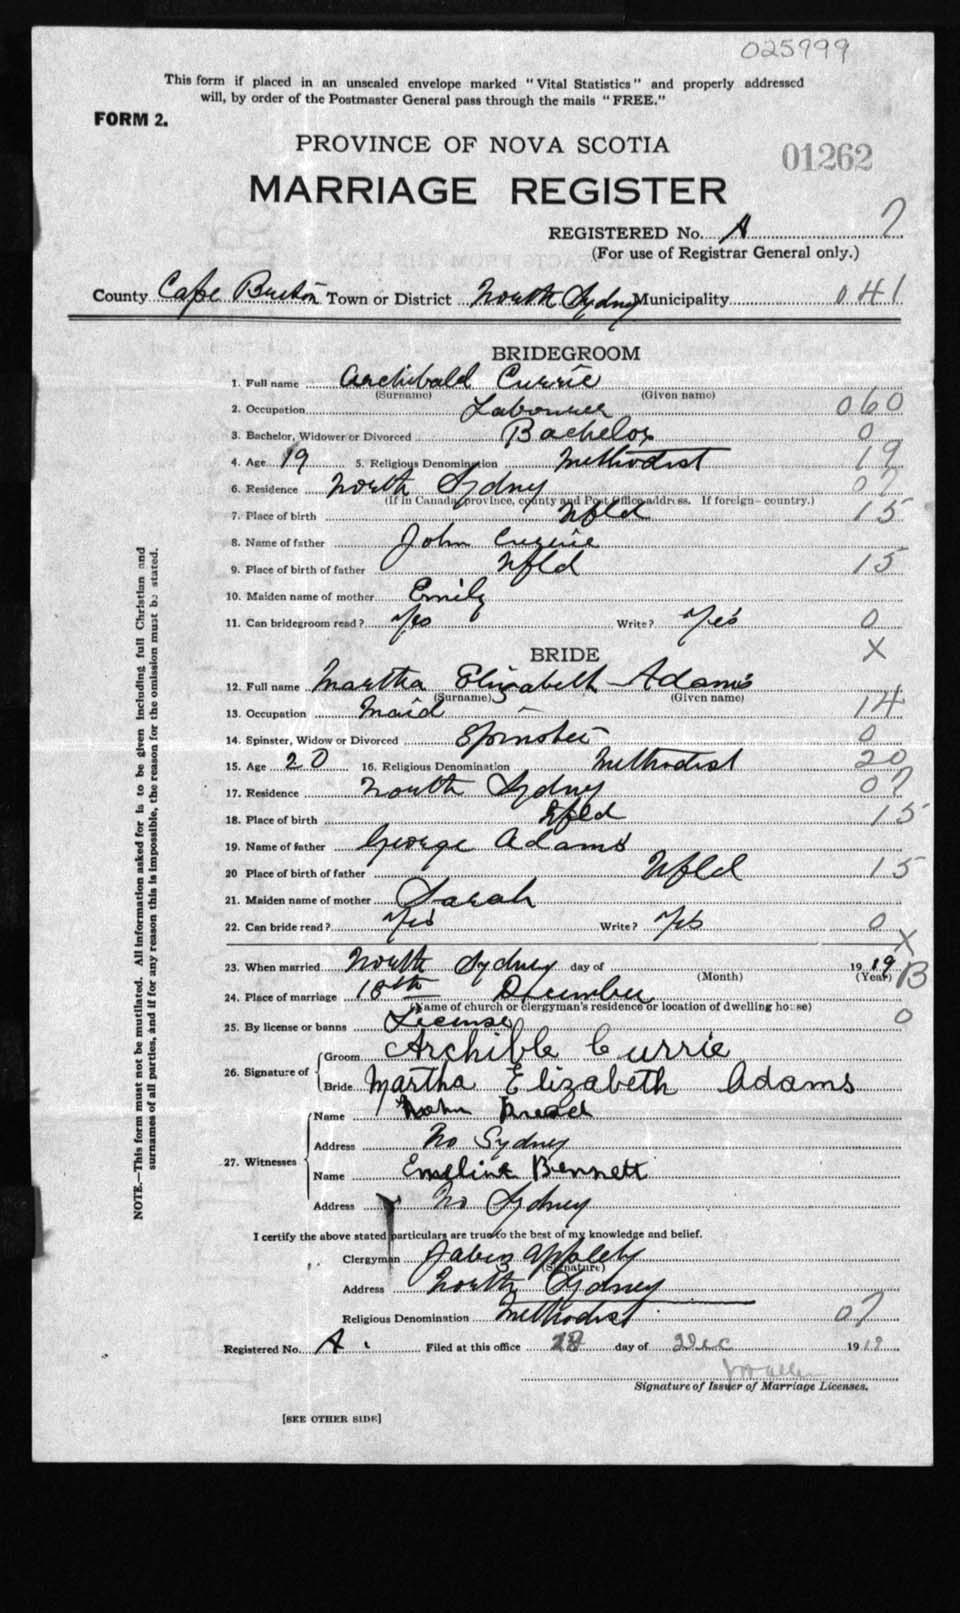 025999
This form if placed in an unsealed envelope marked "Vital Statistics" and properly addressed
will, by order of the Postmaster General pass through the mails "FREE."
FORM 2.
PROVINCE OF NOVA SCOTIA
01262
MARRIAGE REGISTER
REGISTERED No. A 7
(For use of Registrar General only.)
County Cape Breton Town or District North Sydney Municipality 041
BRIDEGROOM
1. Full name Archibald Currie
(Surname) (Given name)
2. Occupation Labourer 060
3. Bachelor, Widower or Divorced Bachelor 0
4. Age 19 5. Religious Denomination Methodist 19
6. Residence North Sydney 07
(If in Canada, province, county and Post Office address. If foreign- country.)
7. Place of birth Nfld 15
8. Name of father John Currie
9. Place of birth of father Nfld 15
10. Maiden name of mother Emily
11. Can bridegroom read? Yes Write? Yes 0
X
BRIDE
12. Full name Martha Elizabeth Adams
(Surname) (Given name)
13. Occupation Maid 14
14. Spinster, Widow or Divorced Spinster 0
15. Age 20 16. Religious Denomination Methodist 20
17. Residence North Sydney 07
18. Place of birth Nfld 15
19. Name of father George Adams
20 Place of birth of father Nfld 15
21. Maiden name of mother Sarah
22. Can bride read? Yes Write? Yes 0
X
23. When married North Sydney day of 1919
(Month) (Year) B
24. Place of marriage 18th December
(Name of church or clergyman's residence or location of dwelling house)
25. By license or banns License 0
26. Signature of Groom Archible Currie
Bride Martha Elizabeth Adams
27. Witnesses
Name
Address No Sydney
Name Emeline Bennett
Address No Sydney
I certify the above stated particulars are true to the best of my knowledge and belief.
Clergyman Jabez Appleby
(Signature)
Address North Sydney
Religious Denomination Methodist 07
Registered No. A Filed at this office day of Dec 1919
Signature of Issuer of Marriage Licenses.
[SEE OTHER SIDE]
NOTE.—This form must not be mutilated. All information asked for is to be given including full Christian and
surnames of all parties, and if for any reason this is impossible, the reason for the omission must be stated.